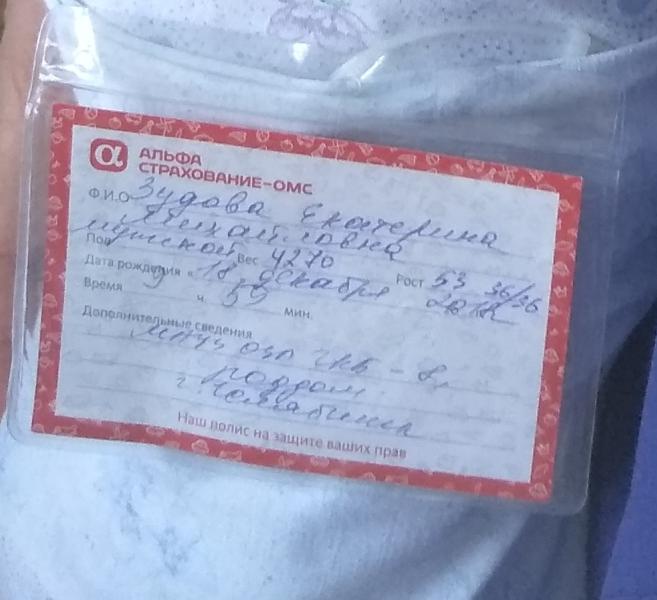 α АЛЬФА
СТРАХОВАНИЕ-ОМС
Ф.И.О Зудова Екатерина
Михайловна
Пол мужской Вес 4270 Рост 53 36/36
Дата рождения « 18 декабря
Время 9 ч. 55 мин.
Дополнительные сведения
МАУЗ ОЗП ГКБ - 8,
роддом
г. Челябинск
Наш полис на защите ваших прав